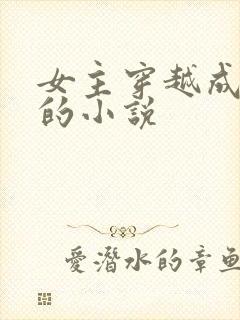 女主穿越成
的小說
愛潛水的章魚